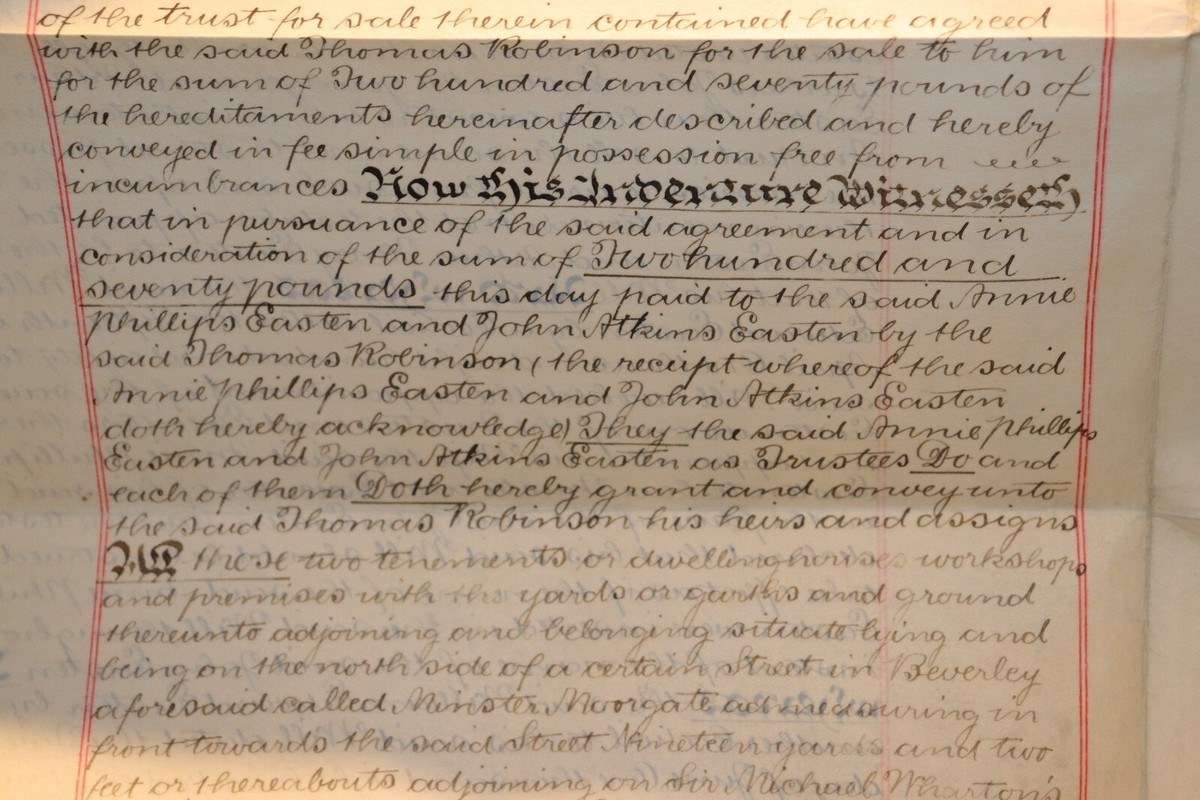 of the trust for sale therein contained have agreed
with the said Thomas Robinson for the sale to him
for the sum of Two hundred and seventy pounds of
the hereditaments hereinafter described and hereby
conveyed in fee simple in possession free from
incumbrances Now this Indenture Witnesseth
that in pursuance of the said agreement and in
consideration of the sum of Two hundred and
seventy pounds this day paid to the said Annie
Phillips Easten and John Atkins Easten by the
said Thomas Robinson (the receipt whereof the said
Annie Phillips Easten and John Atkins Easten
doth hereby acknowledge) They the said Annie Phillips
Easten and John Atkins Easten as Trustees Do and
each of them Doth hereby grant and convey unto
the said Thomas Robinson his heirs and assigns
All those two tenements or dwellinghouses workshops
and premises with the yards or garths and ground
thereunto adjoining and belonging situate lying and
being on the north side of a certain Street in Beverley
aforesaid called Minster Moorgate admeasuring in
front towards the said Street Nineteen yards and two
feet or thereabouts adjoining on Sir Michael Wharton's